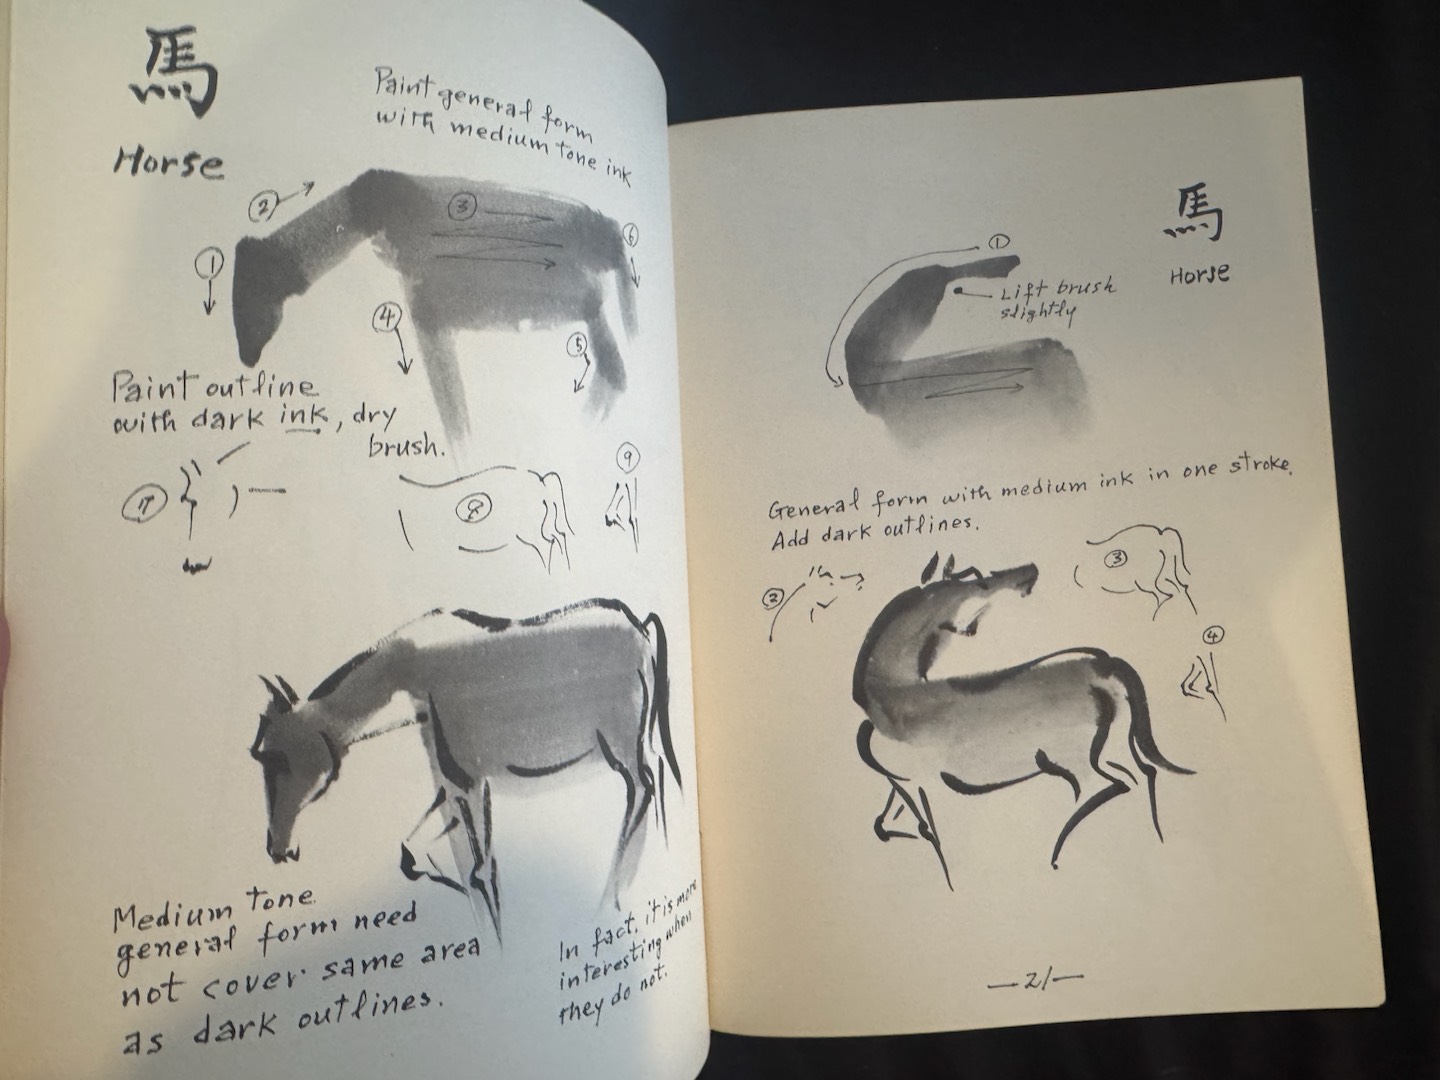 馬
Horse
Paint general form
with medium tone ink
①
②
③
④
⑤
⑥
Paint outline
with dark ink, dry
brush.
⑧
⑨
Medium tone
general form need
not cover same area
as dark outlines.
In fact, it is more
interesting when
they do not.
馬
Horse
①
Lift brush
slightly
General form with medium ink in one stroke.
Add dark outlines.
②
③
④
—21—